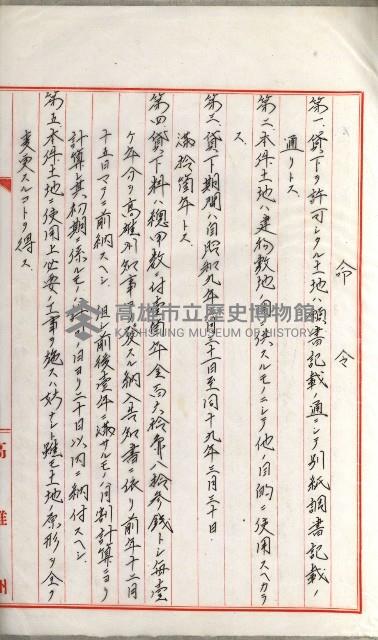 命令
第一、貸下ヲ許可シタル土地ハ願書記載ノ通ニシテ別紙調書記載ノ
通リトス
第二、本件土地ハ建物敷地ノ目的ニ供スルモノニシテ他ノ目的ニ使用スヘカラ
ス
第三、貸下期間ハ自昭和九年 月三十一日至同十九年三月三十日
滿拾箇年トス
第四 貸下料ハ總甲數ニ付壹箇年金 六拾 八拾參錢トシ每壹
ケ年分ヲ高雄州知事ノ發スル納入告知書ニ依リ前年十二月
十五日マテニ前納スヘシ 但シ前後壹年ニ滿サルモノハ月割計算ニヨリ
計算シ其ノ初期ニ係ルモノハ 日ヨリ二十日以內ニ納付スヘシ
第五 本件土地ニ使用上必要ノ工事ヲ施スハ妨ナシト雖モ土地ノ原形ヲ全ク
変更スルコトヲ得ス
高雄州
高雄市立歷史博物館
KAOHSIUNG MUSEUM OF HISTORY